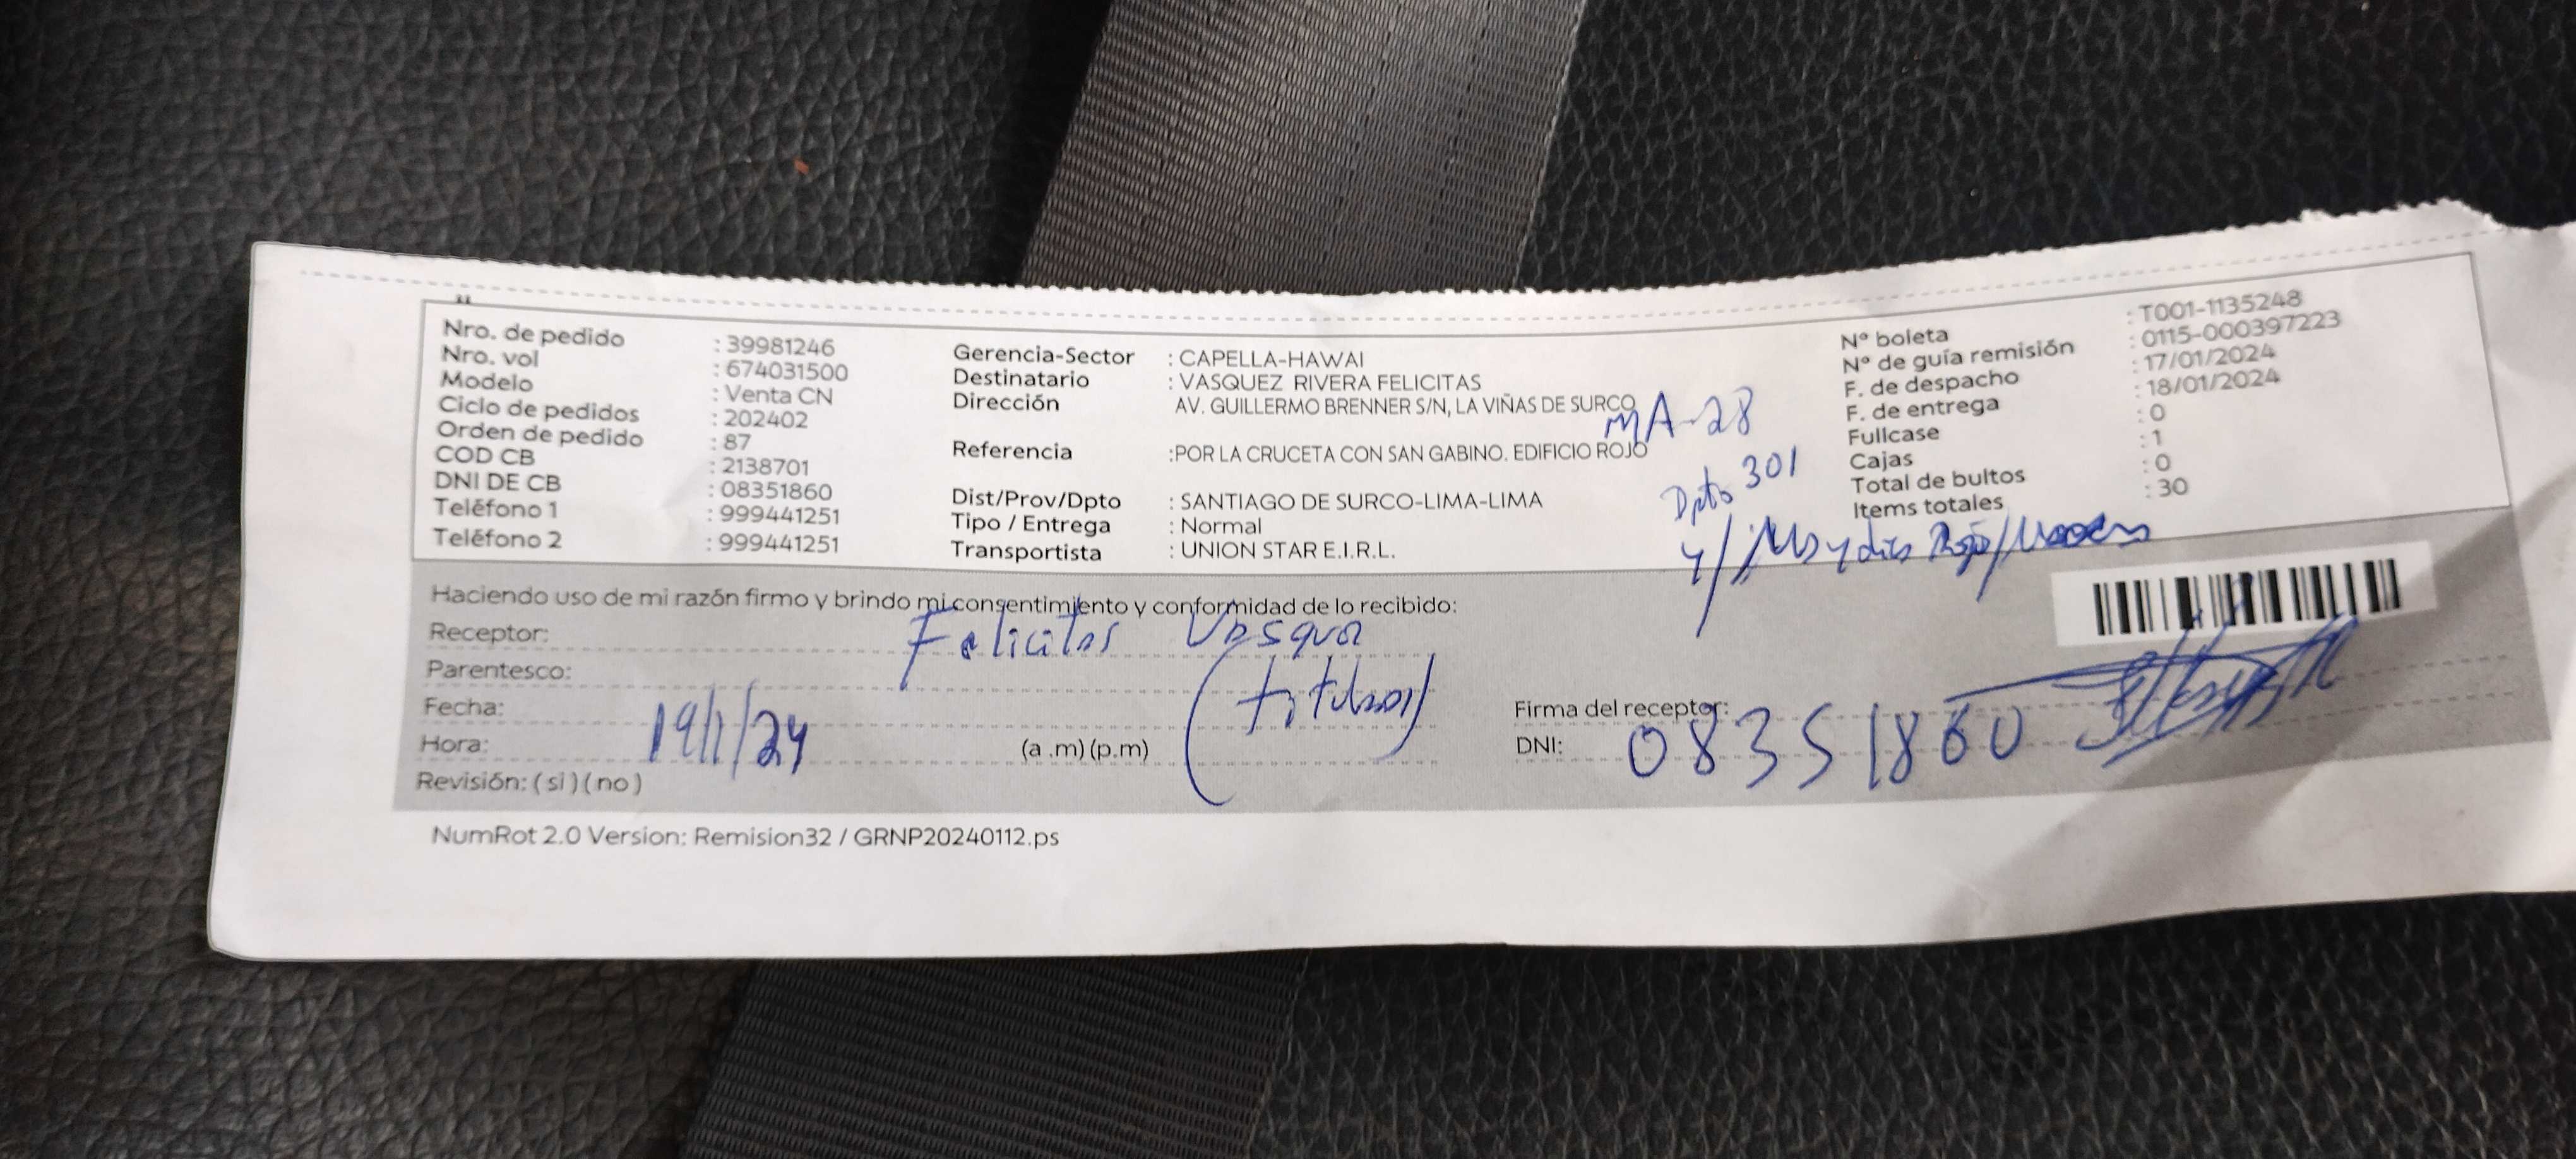 Nro. de pedido : 39981246
Nro. vol : 674031500
Modelo : Venta CN
Ciclo de pedidos : 202402
Orden de pedido : 87
COD CB : 2138701
DNI DE CB : 08351860
Teléfono 1 : 999441251
Teléfono 2 : 999441251
Gerencia-Sector : CAPELLA-HAWAI
Destinatario : VASQUEZ RIVERA FELICITAS
Dirección AV. GUILLERMO BRENNER S/N, LA VIÑAS DE SURCO
MA-28
Referencia :POR LA CRUCETA CON SAN GABINO. EDIFICIO ROJO
Dpto 301
Dist/Prov/Dpto : SANTIAGO DE SURCO-LIMA-LIMA
Tipo / Entrega : Normal
Transportista : UNION STAR E.I.R.L.
N° boleta : T001-1135248
N° de guía remisión : 0115-000397223
F. de despacho : 17/01/2024
F. de entrega : 18/01/2024
Fullcase : 0
Cajas : 1
Total de bultos : 0
Items totales : 30
Haciendo uso de mi razón firmo y brindo mi consentimiento y conformidad de lo recibido:
Receptor: Felicitas
Parentesco: (titular)
Fecha: 19/1/24
Hora: (a .m) (p.m)
Revisión: ( si ) ( no )
Firma del receptor:
DNI: 08351860
NumRot 2.0 Version: Remision32 / GRNP20240112.ps